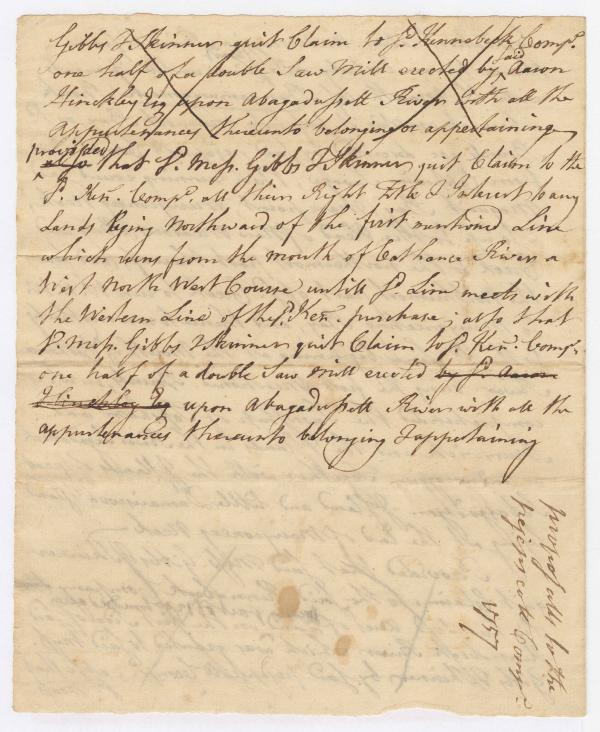 Gibbs & Skinner quit Claim to sd. Kennebeck Compa.
one half of a double Saw Mill erected by said Aaron
Hinckley Esq upon Abagadussett River with all the
Appurtenances thereunto belonging or appertaining
provided also that sd. Mess. Gibbs & Skinner quit Claim to the
sd. Ken: Compa. all their Right Title & Interest to any
Lands lying Northward of the first mentioned Line
which runs from the mouth of Cathance River a
West North West Course untill sd. Line meets with
the Western Line of the sd. Ken: purchase; also that
sd. Mess. Gibbs & Skinner quit Claim to sd. Ken: Compa.
one half of a double Saw Mill erected by sd. Aaron
Hinckley Esq upon Abagadussett River with all the
appurtenances thereunto belonging & appertaining
proposalls to the
pejepscott Compa.
1757